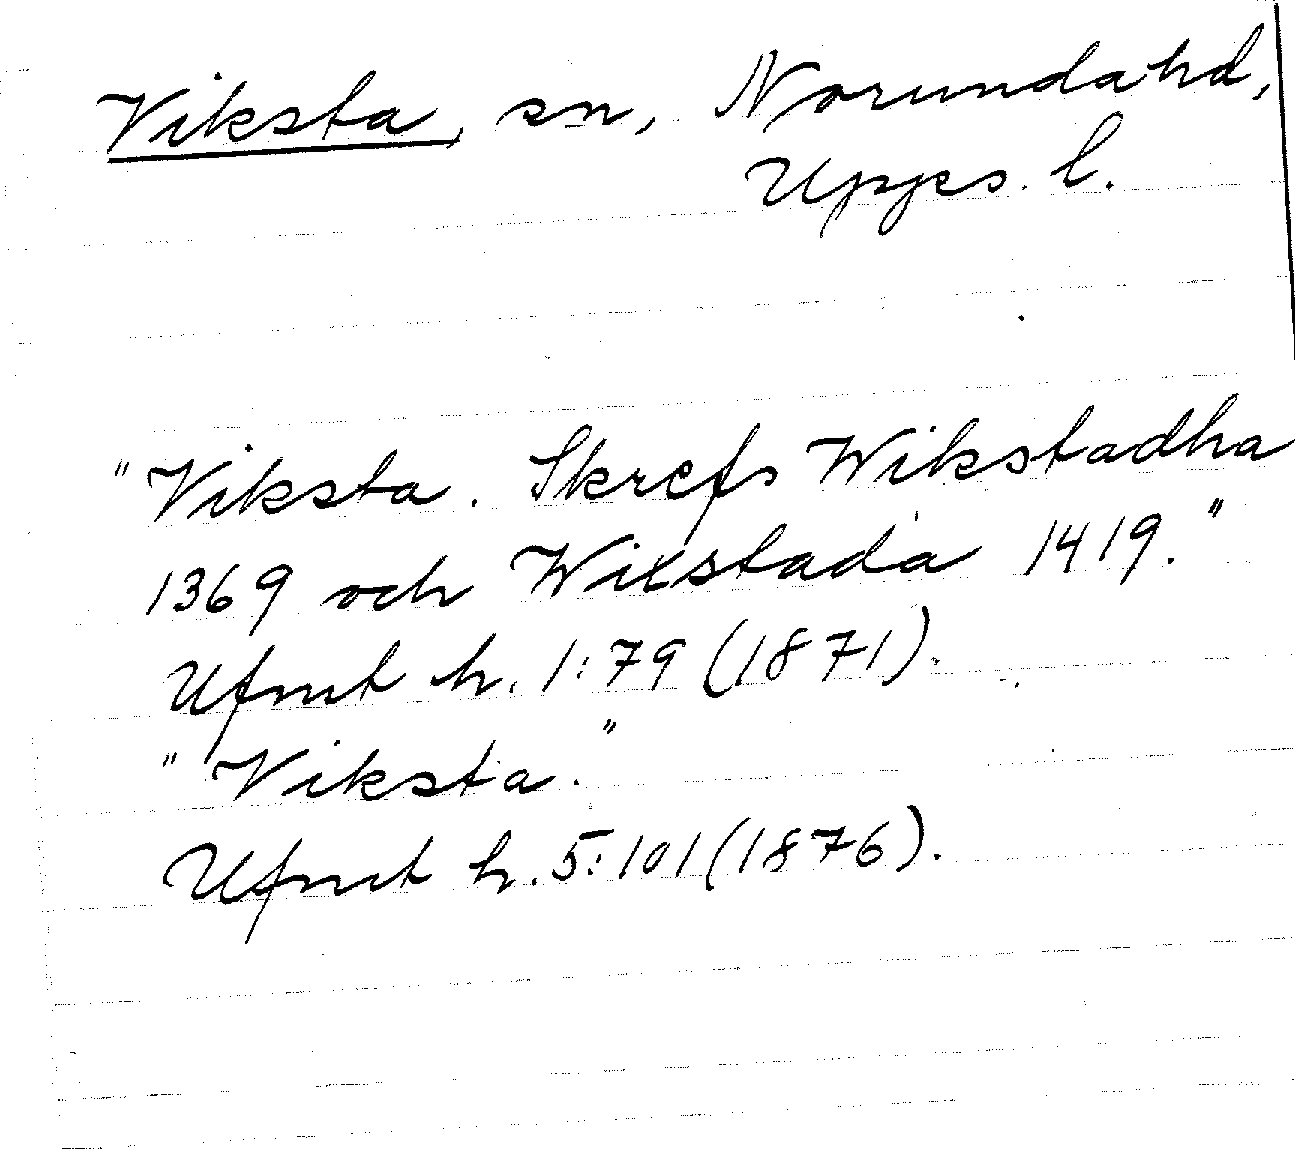 Viksta, sn, Norunda hd,
Upps. l.
"Viksta. Skrefs Wikstadha
1369 och Wixstada 1419."
Ufmt h. 1:79 (1871).
"Viksta."
Ufmt h. 5:101 (1876).